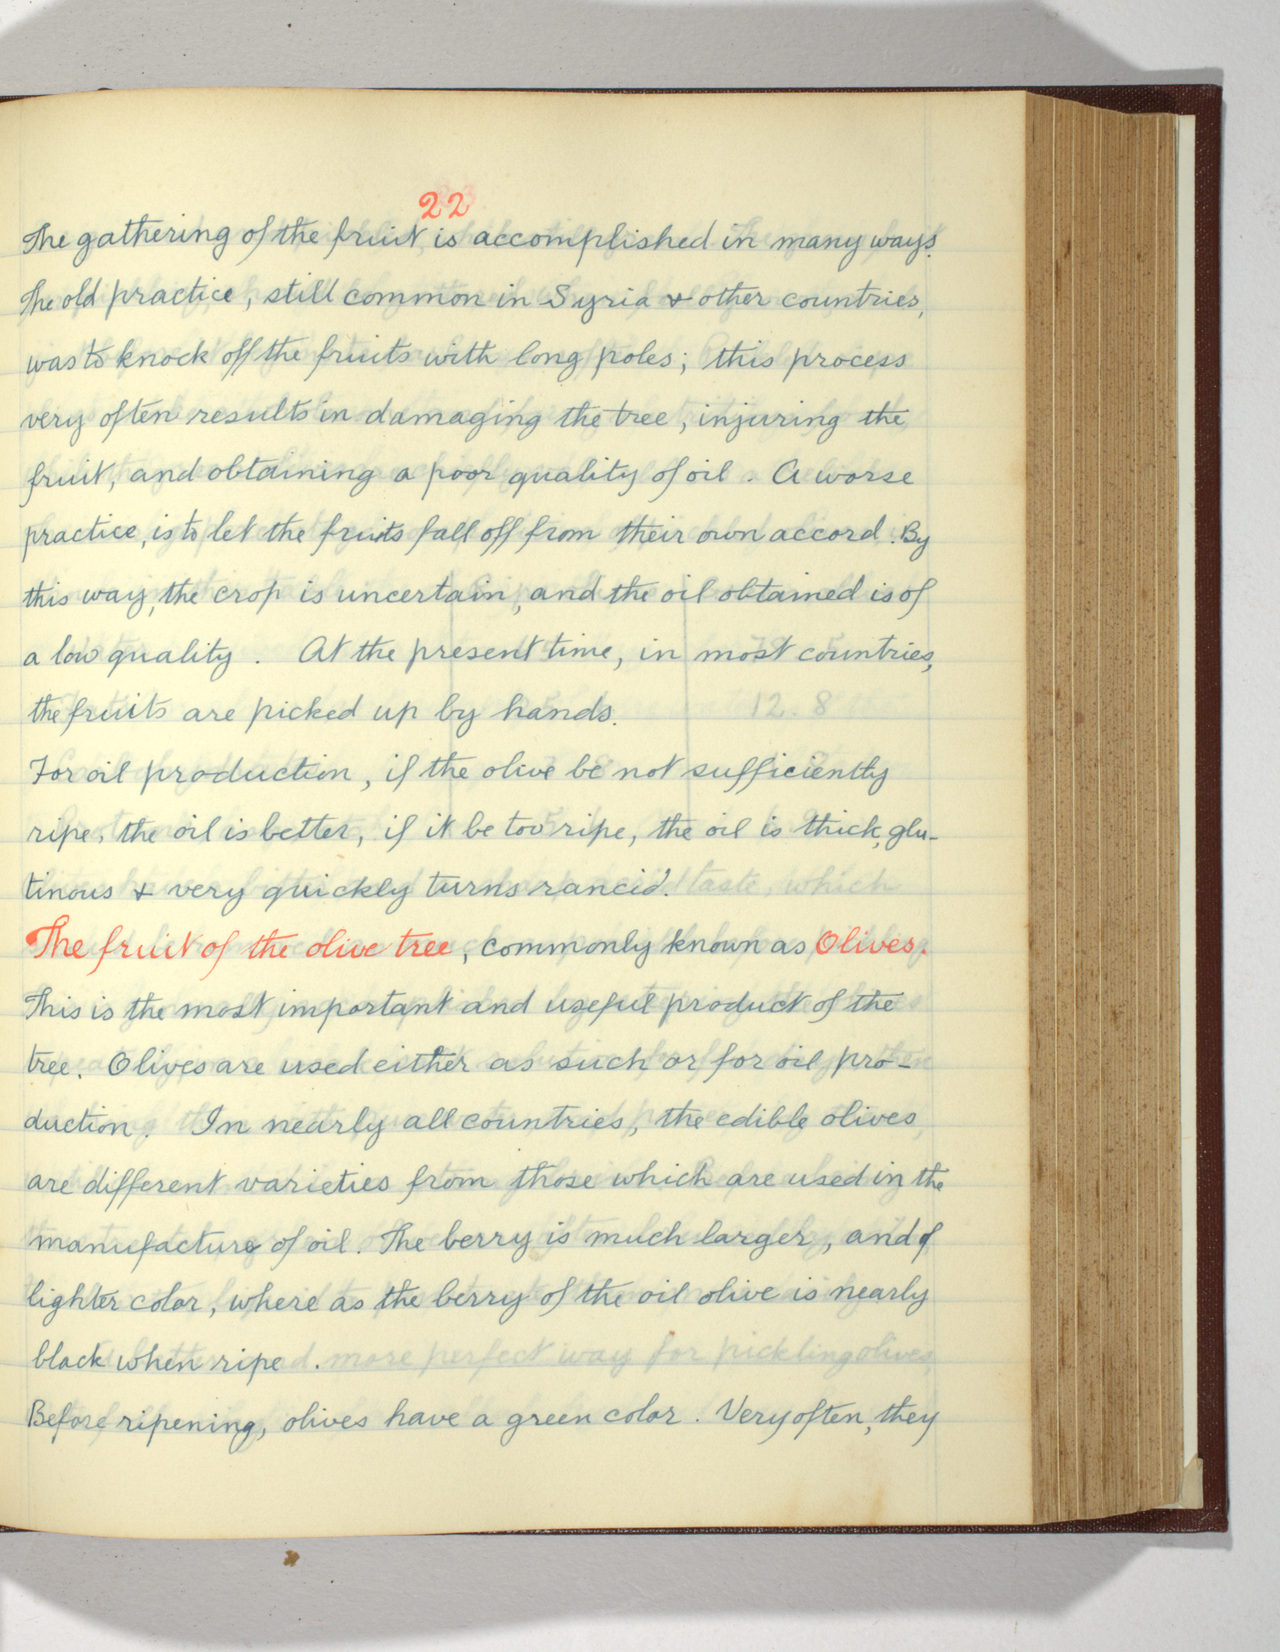 22
The gathering of the fruit is accomplished in many ways.
The old practice, still common in Syria & other countries,
was to knock off the fruits with long poles; this process
very often results in damaging the tree, injuring the
fruit, and obtaining a poor quality of oil. A worse
practice, is to let the fruits fall off from their own accord. By
this way, the crop is uncertain, and the oil obtained is of
a low quality. At the present time, in most countries,
the fruits are picked up by hands.
For oil production, if the olive be not sufficiently
ripe, the oil is better, if it be too ripe, the oil is thick, glu-
tinous & very quickly turns rancid.
The fruit of the olive tree, commonly known as Olives.
This is the most important and useful product of the
tree. Olives are used either as such or for oil pro-
duction. In nearly all countries, the edible olives,
are different varieties from those which are used in the
manufacture of oil. The berry is much larger, and of
lighter color, where as the berry of the oil olive is nearly
black when ripe.
Before ripening, olives have a green color. Very often, they